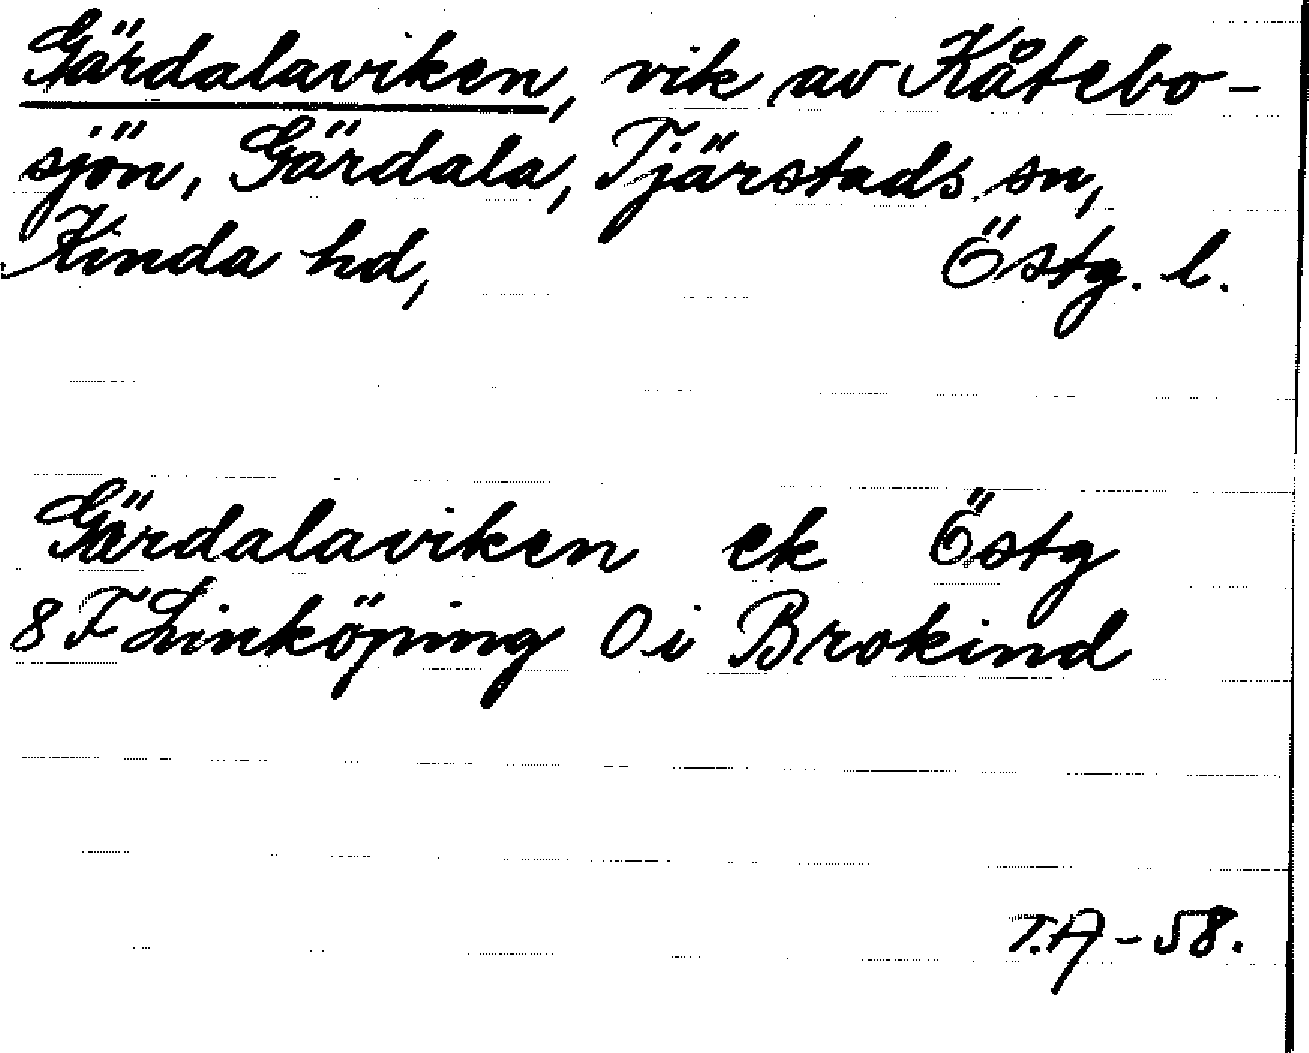 Gärdalaviken, vik av Kåtebo-
sjön, Gärdala, Tjärstads sn,
Kinda hd, Östg. l.
Gärdalaviken ek Östg
8 F Linköping 0 i Brokind
T.A - 58.